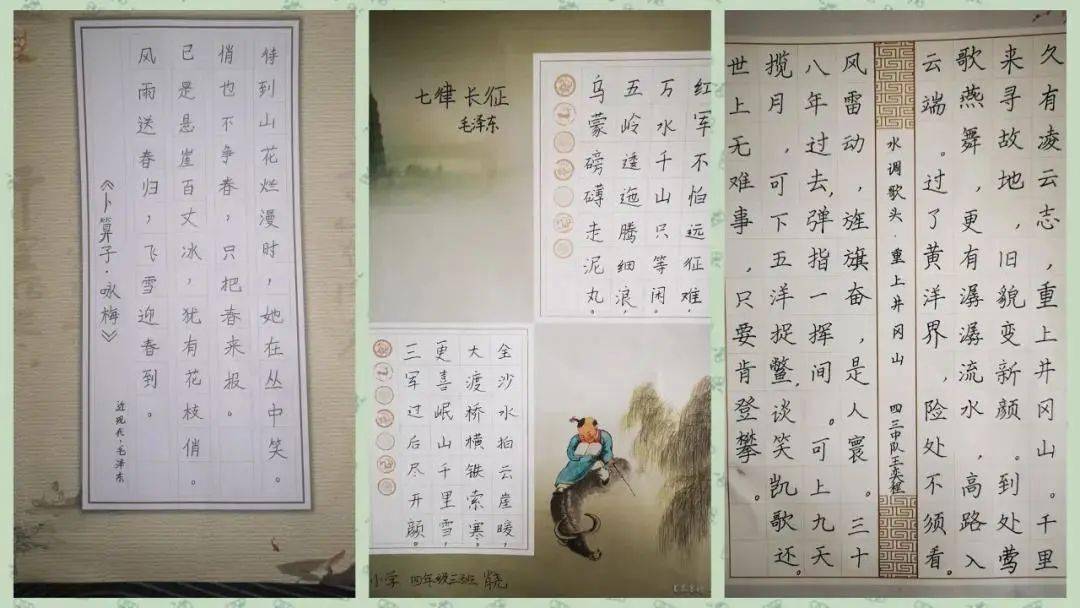 《卜算子·咏梅》
近现代·毛泽东
风雨送春归，飞雪迎春到。
已是悬崖百丈冰，犹有花枝俏。
俏也不争春，只把春来报。
待到山花烂漫时，她在丛中笑。
七律 长征
毛泽东
红军不怕远征难，
万水千山只等闲。
五岭逶迤腾细浪，
乌蒙磅礴走泥丸。
全沙水拍云崖暖，
大渡桥横铁索寒。
更喜岷山千里雪，
三军过后尽开颜。
小学 四年级三班
久有凌云志，重上井冈山。千里
来寻故地，旧貌变新颜。到处莺
歌燕舞，更有潺潺流水，高路入
云端。过了黄洋界，险处不须看。
水调歌头·重上井冈山 四三中队王奕程
风雷动，旌旗奋，是人寰。三十
八年过去，弹指一挥间。可上九天
揽月，可下五洋捉鳖，谈笑凯歌还。
世上无难事，只要肯登攀。